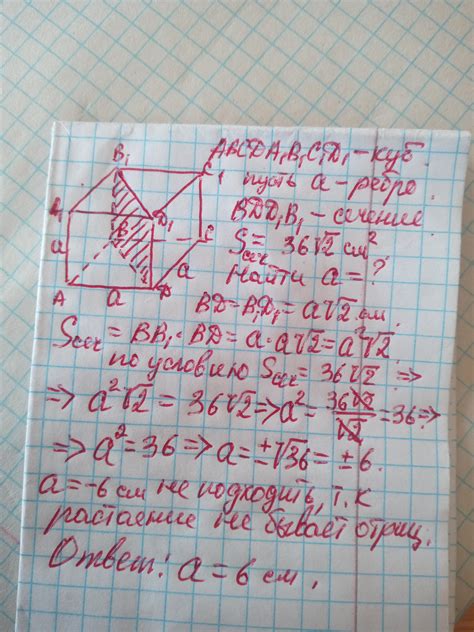 ABCDA₁B₁C₁D₁ – куб.
B₁
C₁
пусть a – ребро
A₁
D₁
BDD₁B₁ – сечение
B
C
Sсеч = 36√2 см²
a
a
Найти a = ?
A
a
D
BD = B₁D₁ = a√2 см.
Sсеч = BB₁ · BD = a · a√2 = a²√2
по условию Sсеч = 36√2 ⇒
⇒ a²√2 = 36√2 ⇒ a² = 36√2/√2 = 36 ⇒
⇒ a² = 36 ⇒ a = ±√36 = ±6.
a = -6 см не подходить, т.к
растаение не бывает отриц.
Ответ: a = 6 см.